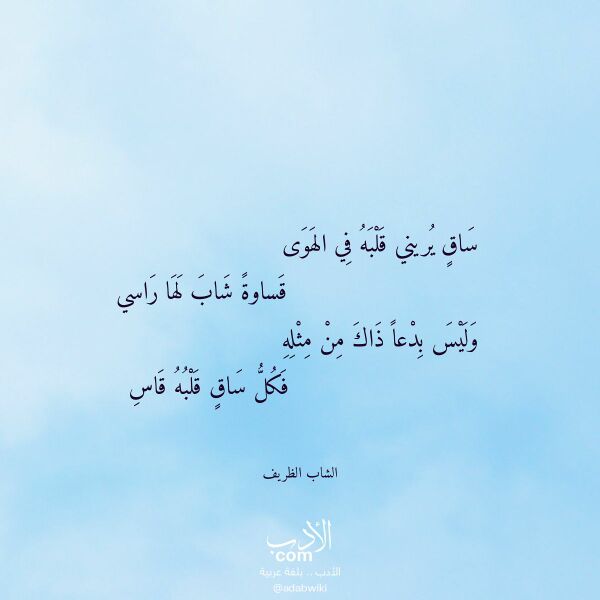 سَاقٍ يُريني قَلْبَهُ فِي الهَوَى
قَساوةً شَابَ لَهَا رَاسي
وَلَيْسَ بِدْعاً ذَاكَ مِنْ مِثْلِهِ
فَكُلُّ سَاقٍ قَلْبُهُ قَاسِ
الشاب الظريف
الأدب
com
الأدب .. بلغة عربية
@adabwiki